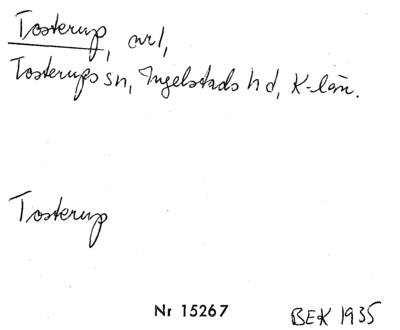 Tosterup, avl,
Tosterups sn, Ingelstads hd, K-län.
Tosterup
Nr 15267 BEK 1935